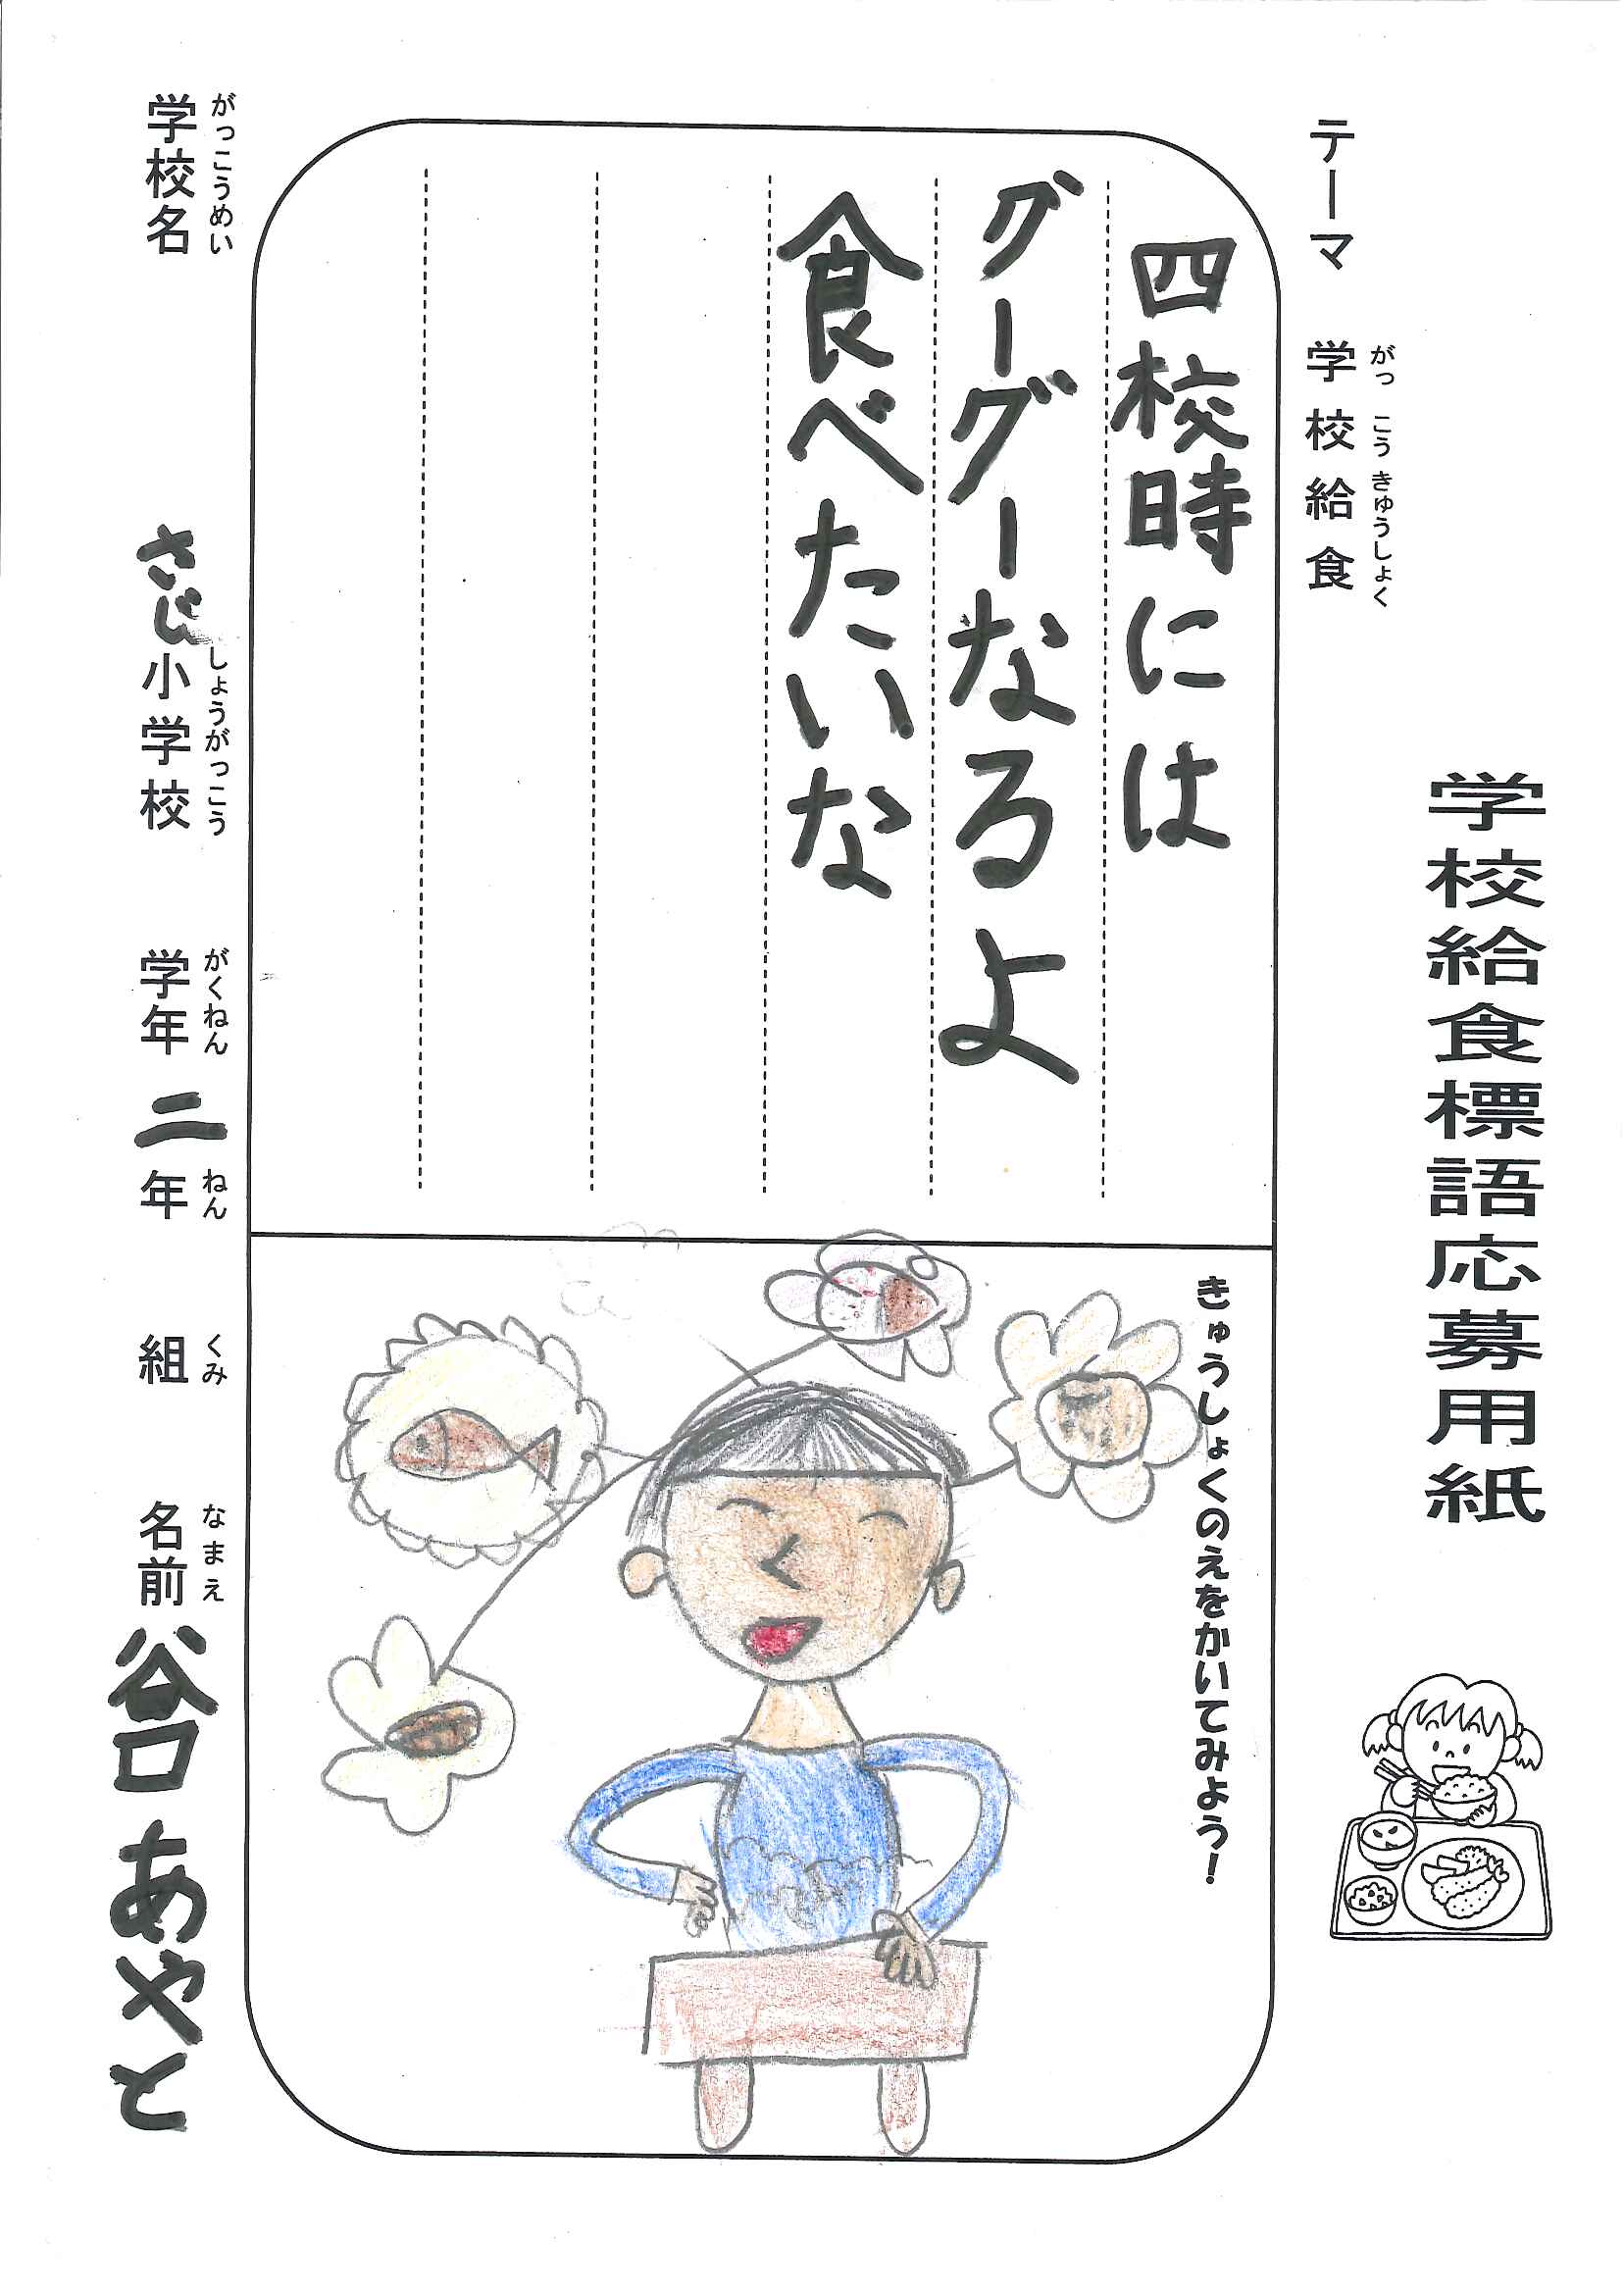 学校給食標語応募用紙
テーマ 学校給食
がっ こう きゅうしょく
四校時には
グーグーなるよ
食べたいな
きゅうしょくのえをかいてみよう！
学校名 さじ小学校 学年 二年 組 名前 谷口 あやと
がっこうめい しょうがっこう がくねん ねん くみ なまえ